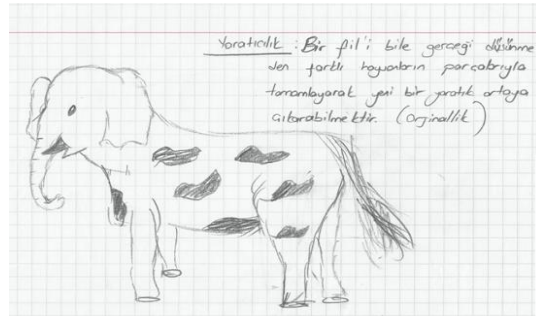 Yaratıcılık : Bir fil'i bile gerçeği düşünme
den farklı hayvanların parçalarıyla
tamamlayarak yeni bir yaratık ortaya
çıkarabilmektir. (Orjinallik)